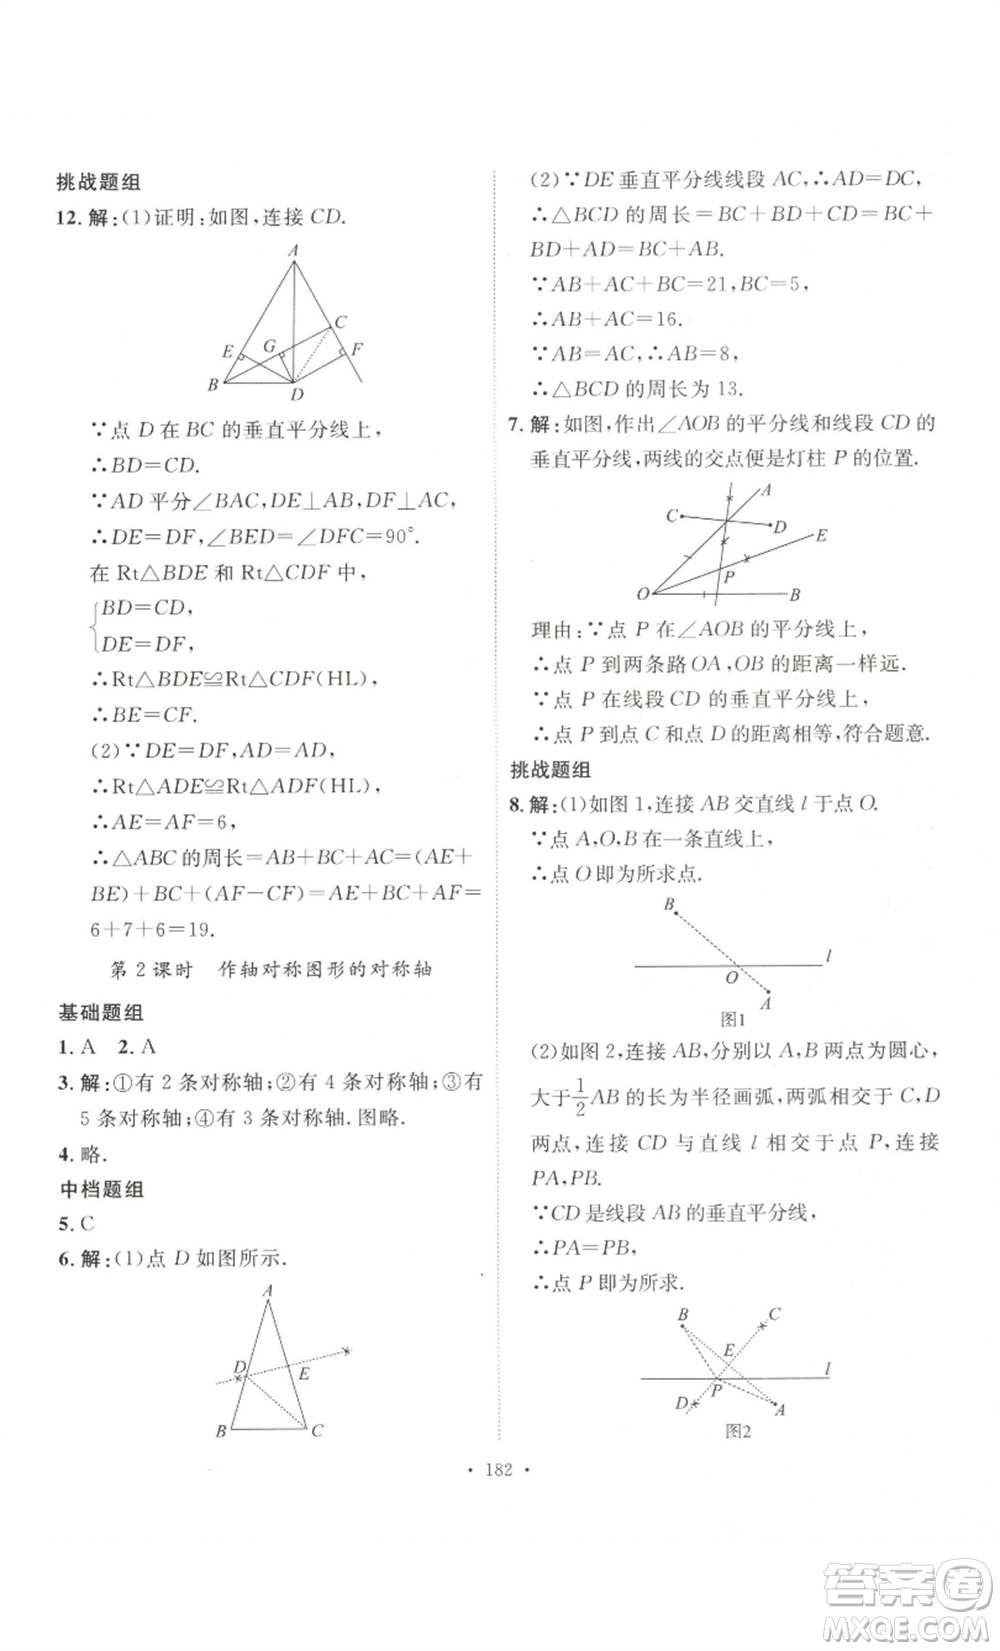 挑战题组
12. 解:(1)证明:如图,连接 CD.
A
C
E
G
F
B
D
∵点 D 在 BC 的垂直平分线上,
∴BD=CD.
∵AD 平分∠BAC,DE⊥AB,DF⊥AC,
∴DE=DF,∠BED=∠DFC=90°.
在 Rt△BDE 和 Rt△CDF 中,
BD=CD,
DE=DF,
∴Rt△BDE≌Rt△CDF(HL),
∴BE=CF.
(2)∵DE=DF,AD=AD,
∴Rt△ADE≌Rt△ADF(HL),
∴AE=AF=6,
∴△ABC 的周长=AB+BC+AC=(AE+
BE)+BC+(AF-CF)=AE+BC+AF=
6+7+6=19.
第 2 课时 作轴对称图形的对称轴
基础题组
1. A 2. A
3. 解:①有 2 条对称轴;②有 4 条对称轴;③有
5 条对称轴;④有 3 条对称轴.图略.
4. 略.
中档题组
5. C
6. 解:(1)点 D 如图所示.
A
D
E
B
C
(2)∵DE 垂直平分线线段 AC,∴AD=DC,
∴△BCD 的周长=BC+BD+CD=BC+
BD+AD=BC+AB.
∵AB+AC+BC=21,BC=5,
∴AB+AC=16.
∵AB=AC,∴AB=8,
∴△BCD 的周长为 13.
7. 解:如图,作出∠AOB 的平分线和线段 CD 的
垂直平分线,两线的交点便是灯柱 P 的位置.
A
C
D
E
P
O
B
理由:∵点 P 在∠AOB 的平分线上,
∴点 P 到两条路 OA,OB 的距离一样远.
∵点 P 在线段 CD 的垂直平分线上,
∴点 P 到点 C 和点 D 的距离相等,符合题意.
挑战题组
8. 解:(1)如图 1,连接 AB 交直线 l 于点 O.
∵点 A,O,B 在一条直线上,
∴点 O 即为所求点.
B
l
O
A
图1
(2)如图 2,连接 AB,分别以 A,B 两点为圆心,
大于1/2AB 的长为半径画弧,两弧相交于 C,D
两点,连接 CD 与直线 l 相交于点 P,连接
PA,PB.
∵CD 是线段 AB 的垂直平分线,
∴PA=PB,
∴点 P 即为所求.
B
C
E
l
P
D
A
图2
· 182 ·
答案圈
MXQE.COM